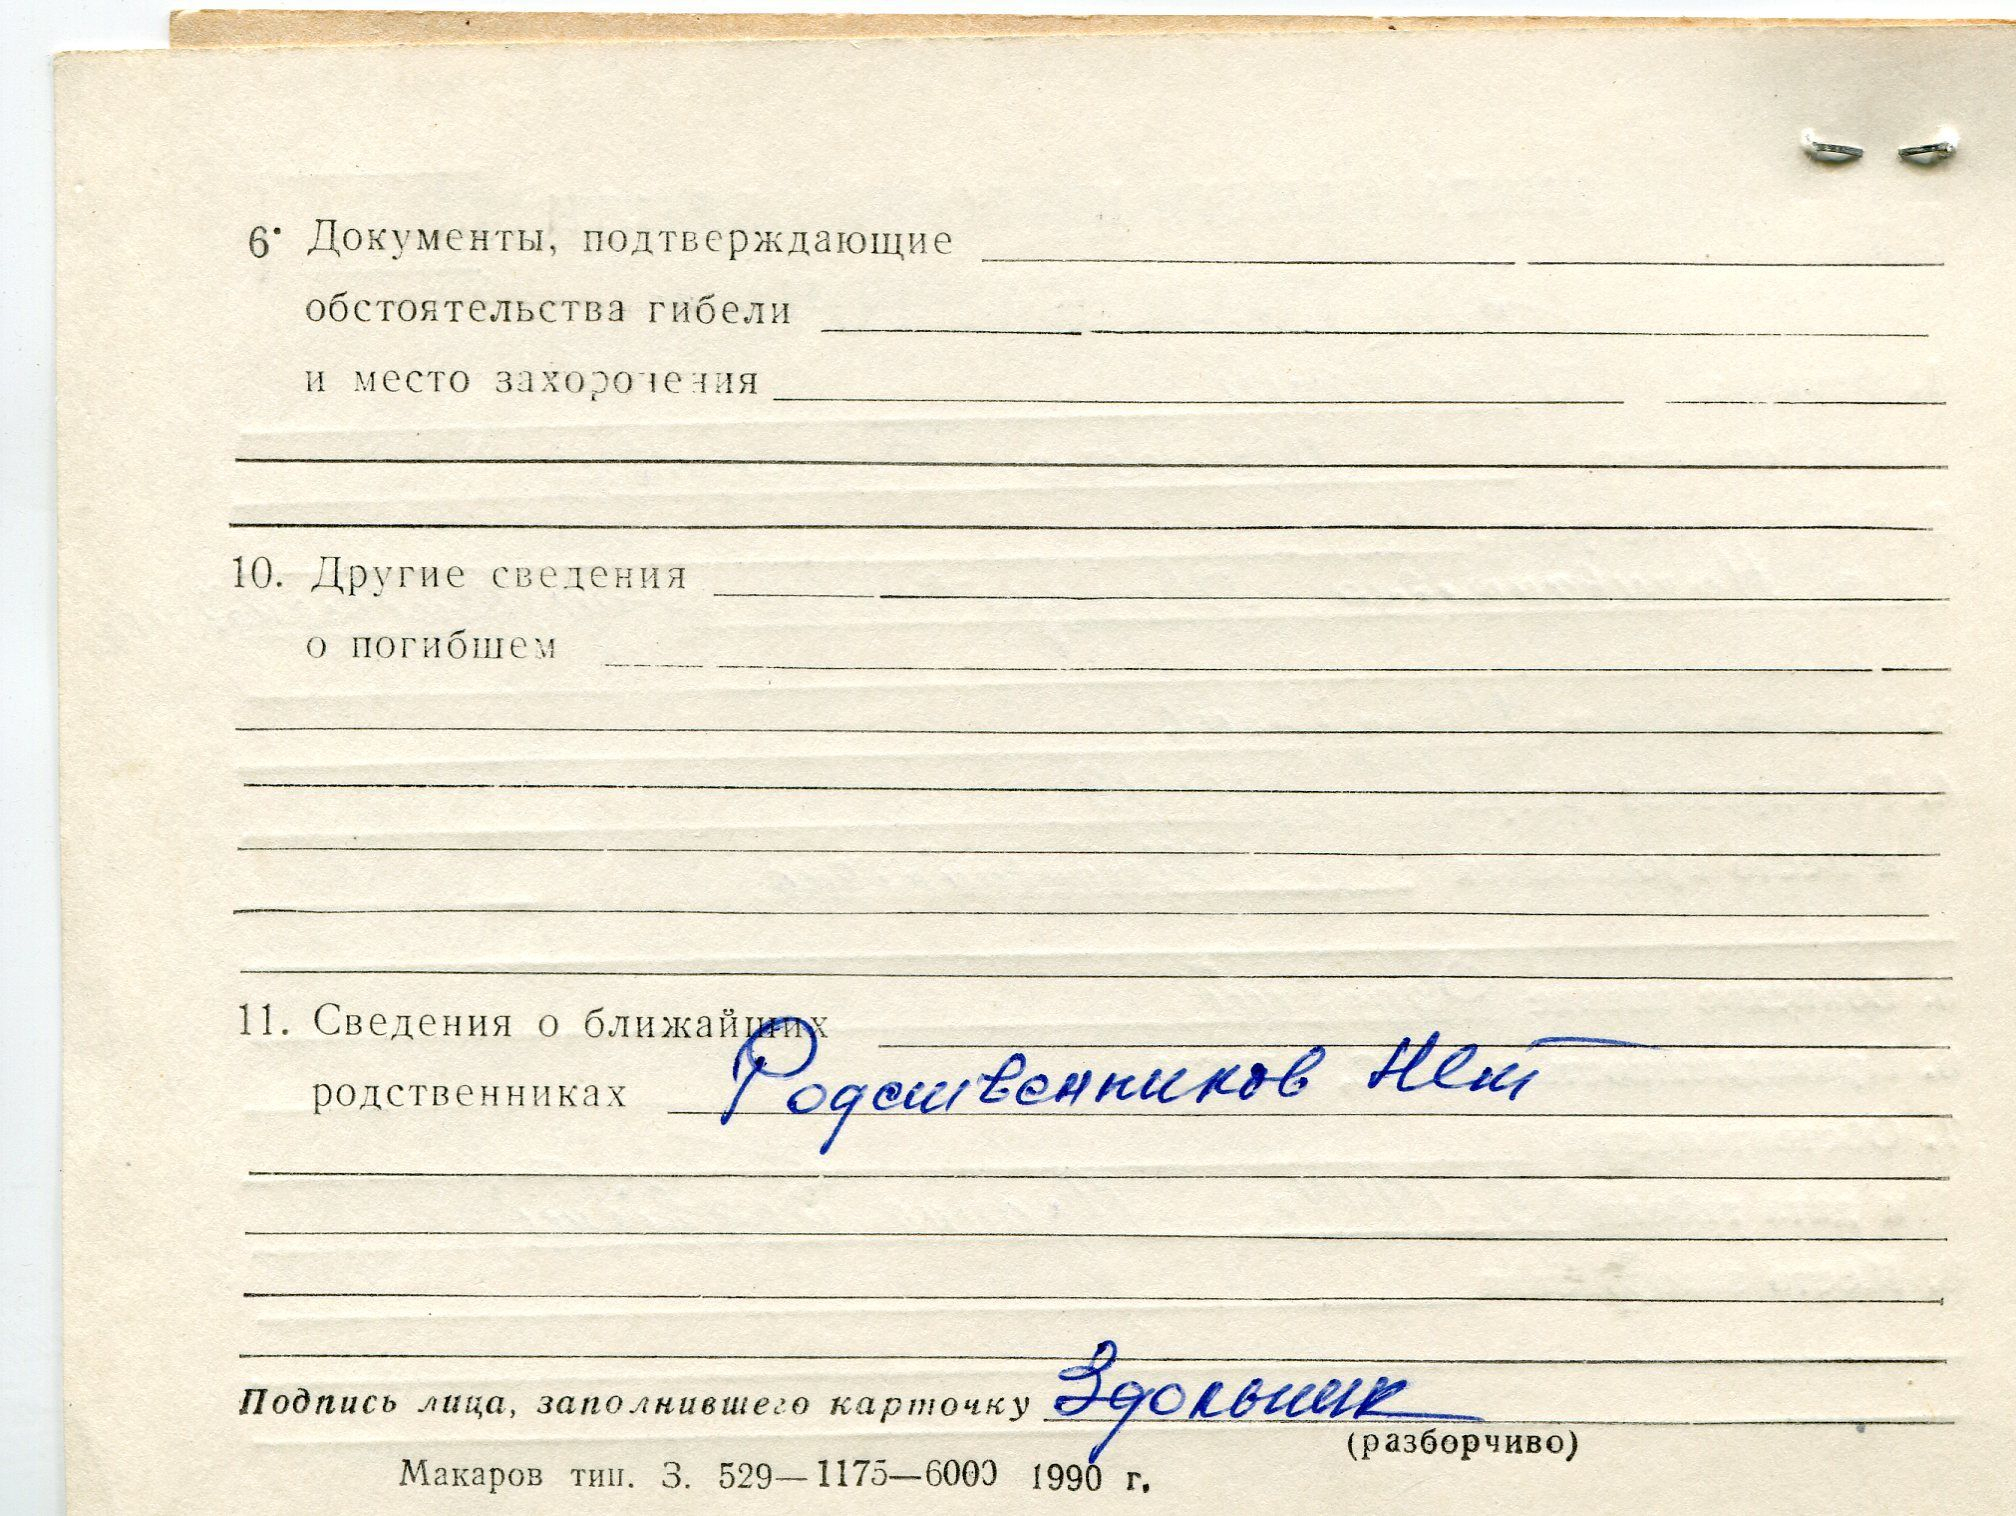 6. Документы, подтверждающие
обстоятельства гибели
и место захоронения
10. Другие сведения
о погибшем
11. Сведения о ближайших
родственниках Родственников Нет
Подпись лица, заполнившего карточку Здольник
(разборчиво)
Макаров тип. З. 529—1175—6000 1990 г.